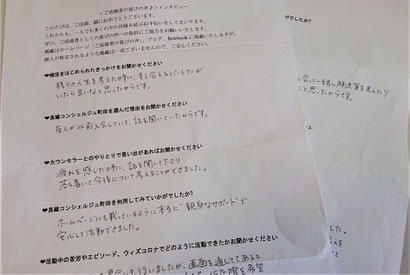 ＜ご成婚者の喜びの声♪＞インタビュー
このたびは、ご成婚、誠におめでとうございます。
これからも、一人でも多くの方の良縁を結ぶお手伝いをしてまいります。
ぜひ、ご成婚者としての喜びの声への取材にご協力をお願いいたします。
掲載はホームページ「ご成婚者の喜びの声」、ブログ、facebookに掲載いたしますが、
個人が特定されるような掲載は一切ございませんので、ご安心ください。
❤婚活をはじめられたきっかけをお聞かせください
残りの人生を考えた時に、支え合えるパートナーが
いたら良いなと思ったからです。
❤良縁コンシェルジュ町田を選んだ理由をお聞かせください
友人が以前入会していて、話を聞いていたからです。
❤カウンセラーとのやりとりで思い出があればお聞かせください
疲れを感じた時に、話を聞いて下さり
落ち着いて今後について考えることができました。
❤良縁コンシェルジュ町田を利用してみていかがでしたか？
ホームページにも載っているように本当に"親身なサポート"で
安心して活動できました。
❤活動中の苦労やエピソード、ウィズコロナでどのように活動できたかお聞かせください
画面を通してしてあると
でしたか？
会って一緒に解決策を考えたり
と思ったからです。
ました。